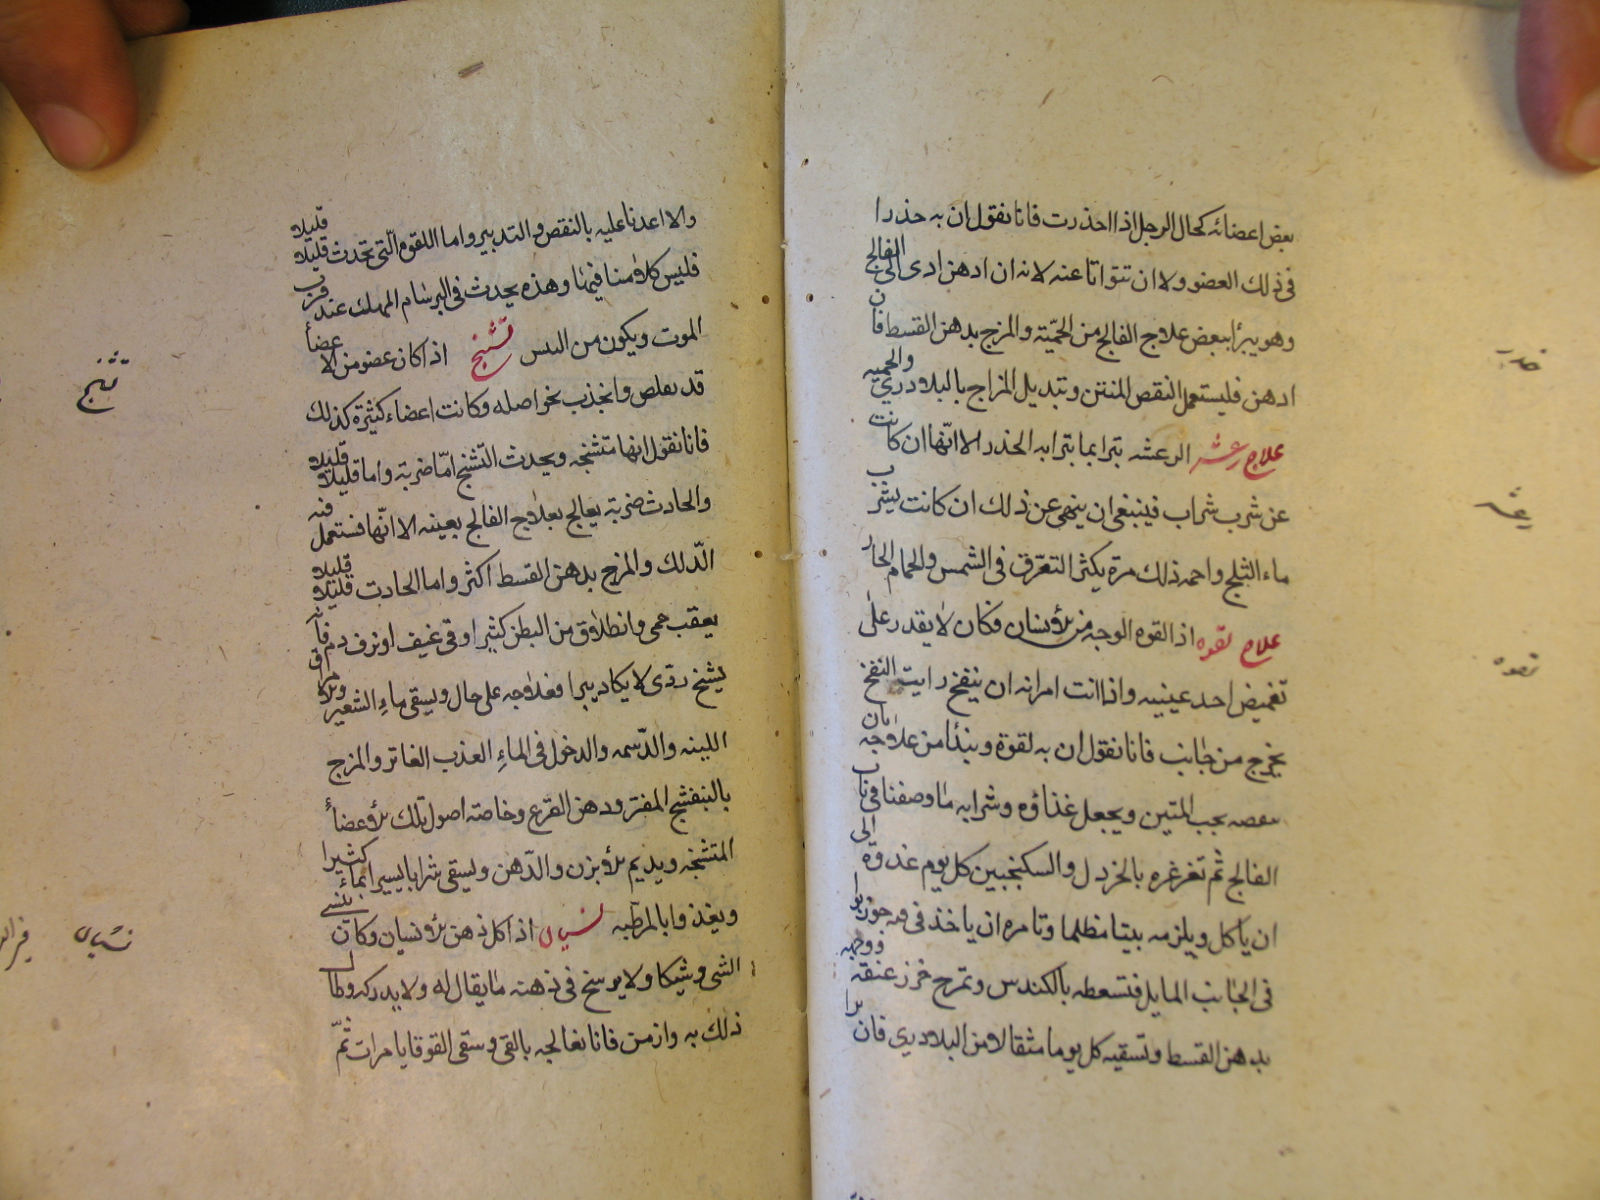 بعض اعضائه كحال الرجل اذا احذرت فانا نقول ان به حذرا
فى ذلك العضو ولا ان تتواتا عنه لانه ان ادهن ادى الى الفالج
وهو يبرأ ببعض علاج الفالج من الحمّيته والمزج بدهن القسط فان
ادهن فليستعمل النقص المنتن وتبديل المزاج بالبلادري والحميه
علاج رعشه الرعشه يترا بما يترا به الحذر الا انّها ان كانت
عن شرب شراب فينبغى ان ينهى عن ذلك ان كانت بشرب
ماء الثلج واحمه ذلك مرة يكثر التعرّق فى الشمس والحمام الحار
علاج لقوه اذا القوه الوجه من بلؤنسان فكان لا يقدر على
تغميض احد عينيه واذا انت امرانه ان ينفخ رايت النفخ
يخرج من جانب فانا نقول ان به لقوة ويبدأ من علاجه بان
بحب المتين ويجعل غذاؤه وشرابه ما وصفنا فى باب
الفالج ثم تغرغره بالخردل والسكنجبين كل يوم غدوه الى
ان ياكل ويلزمه بيتا مظلما وتامره ان ياخذ فى فمه جوزبوا
فى الجانب المايل فتسعطه بالكندس وتمرح خرز عنقه ووجهه
بدهن القسط وتسقيه كل يوما مثقالا من البلادري فان برا
خدر
رعشه
لقوه
والا اعدنا عليه بالنقص والتدبير واما اللقوه الّتى تحدث قليلا قليلا
فليس كلامنا فيها وهذه يحدث فى البرسام المهلك عند قرب
الموت ويكون من اليبس تشنج اذا كان عضو من الاعضأ
قد تقلص وانجذب نحو اصله وكانت اعضاء كثيرة كذلك
فانا نقول انها متشنجه ويحدث التّشنج امّا ضربة واما قليلا قليلا
والحادث ضربة يعالج بعلاج الفالج بعينه الا انّها فستعمل فنه
الدّلك والمزج بدهن القسط اكثر واما الحادث قليلا قليلا
بعقب حمى وانطلاق من البطن كثير او قى عنيف او نزف دم فانه
يشنخ ردى لا يكاد يبرا فعلاجه على حال ويسقى ماء الشعير
اللينه والدّسمه والدخول فى الماءِ العذب الفاتر والمزج
بالبنفشج المفتر ودهن القرع وخاصته اصول تلك بلؤعضأ
المتشنجه ويديم بلؤبزن والدّهن ويسقى شرابا يسيرا بماء كثيرا
ويغذوا بالمرطّبه نسيان اذا كل ذهن بلؤنسيان وكان ينسى
الشى وشيكا ولا يرسخ فى ذهنه ما يقال له ولا يدركه وطال
ذلك به وازمن فانا نعالجه بالقى وسقى القوقايا مرات ثمّ
تشنج
نسيان